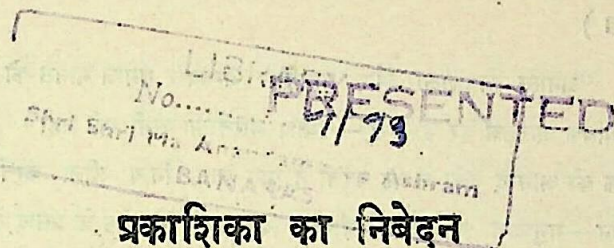 LIBRARY
No...... 4/93
PRESENTED
Shri Shri Ma Ana.......... Ashram
BANARAS
प्रकाशिका का निबेदन